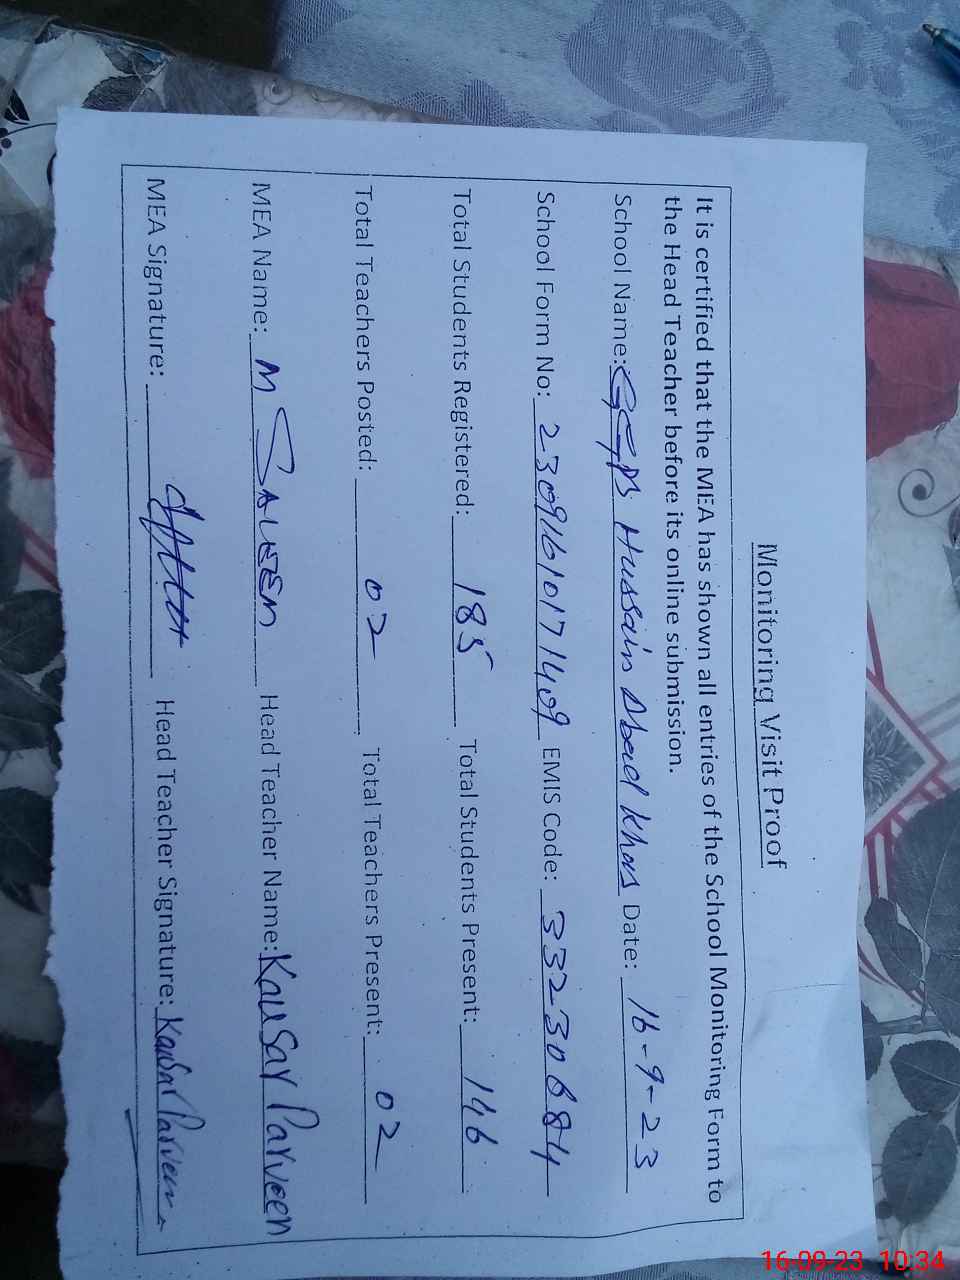 Monitoring Visit Proof
It is certified that the MEA has shown all entries of the School Monitoring Form to
the Head Teacher before its online submission.
School Name: GGPS Hussain Abad Khas Date: 16-9-23
School Form No: 23091610171409 EMIS Code: 33230684
Total Students Registered: 185 Total Students Present: 146
Total Teachers Posted: 02 Total Teachers Present: 02
MEA Name: M SALEEM Head Teacher Name: Kausar Parveen
MEA Signature: Head Teacher Signature: Kausar Parveen
16-09-23 10:34